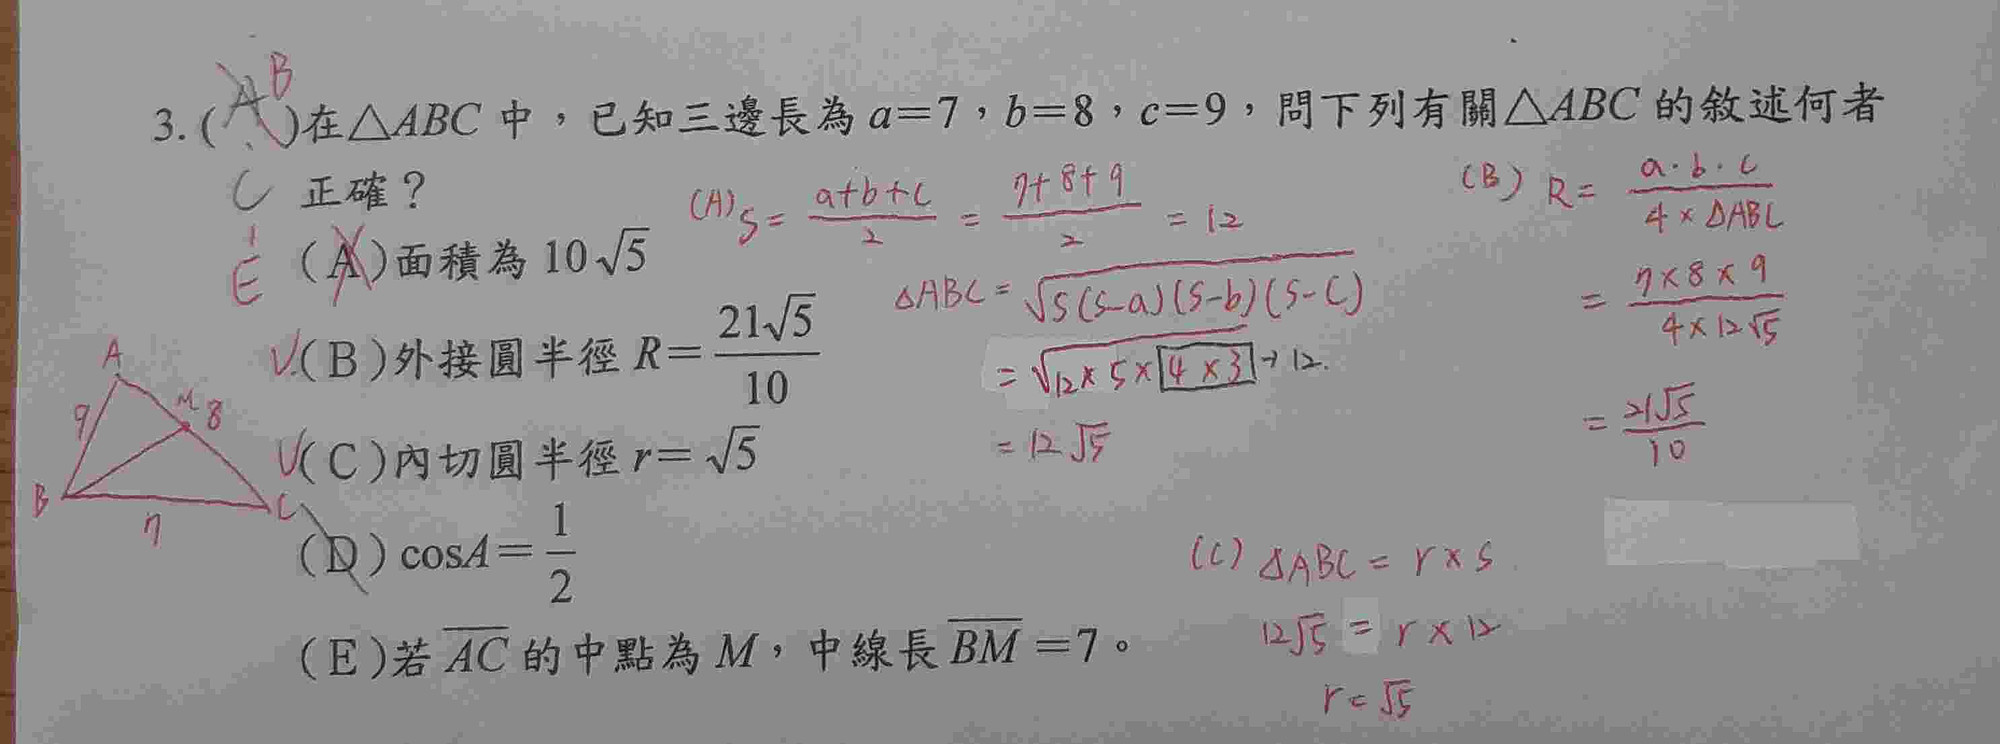 3. ( A B )在△ABC 中，已知三邊長為 a=7，b=8，c=9，問下列有關△ABC 的敘述何者
C 正確？
E (A)面積為 10√5
(B)外接圓半徑 R=21√5/10
(C)內切圓半徑 r=√5
(D) cosA=1/2
(E)若 AC 的中點為 M，中線長 BM =7。
(A) S= a+b+c/2 = 7+8+9/2 = 12
△ABC = √S(S-a)(S-b)(S-C)
= √12×5×4×3 → 12.
= 12√5
(B) R= a·b·c/4×△ABC
= 7×8×9/4×12√5
= 21√5/10
(C) △ABC = r×s
12√5 = r×12
r=√5
A
9 M 8
B C
7